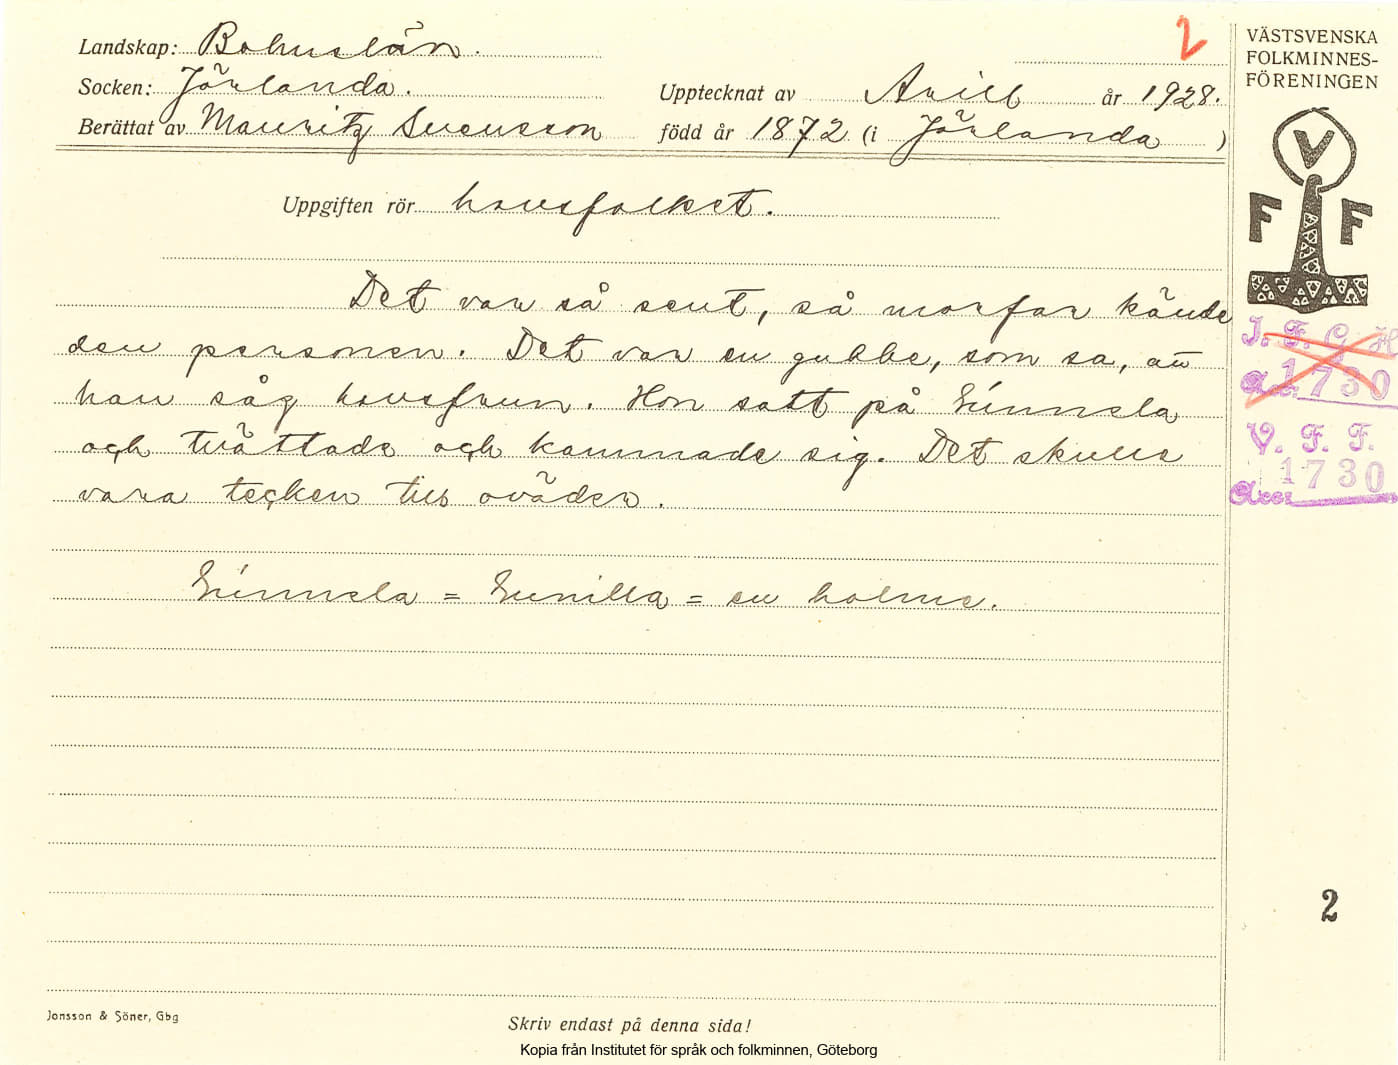 2
Landskap: Bohuslän.
Socken: Jörlanda.
Upptecknat av Arill år 1928.
Berättat av Mauritz Svensson född år 1872 (i Jörlanda)
Uppgiften rör havsfolket.
Det var så sent, så morfar kände
den personen. Det var en gubbe, som sa, att
han såg havsfrun. Hon satt på
och tvättade och kammade sig. Det skulle
vara tecken till oväder.
= = en holme.
VÄSTSVENSKA
FOLKMINNES-
FÖRENINGEN
V
F F
I. F. G. H
Acc. 1730
V. F. F.
Acc: 1730
2
Jonsson & Söner, Gbg
Skriv endast på denna sida!
Kopia från Institutet för språk och folkminnen, Göteborg